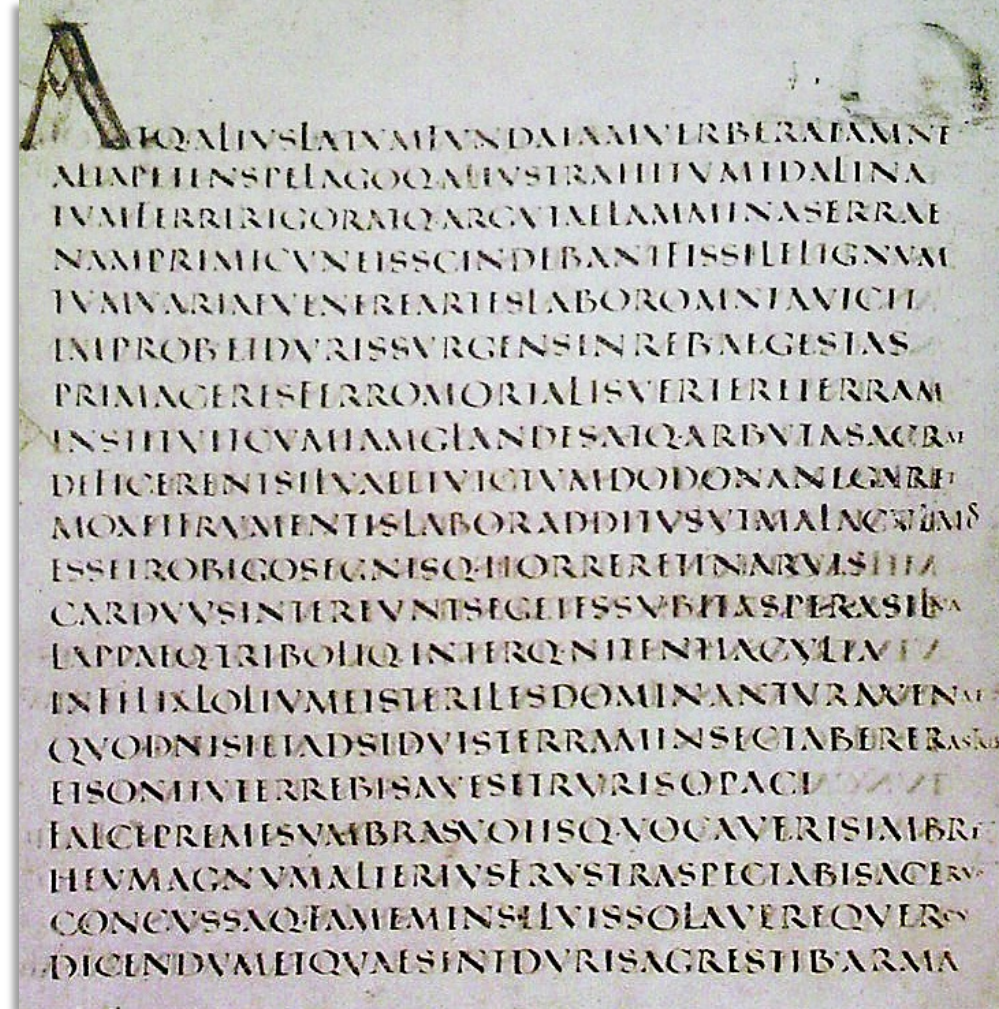 ATQ·ALIVSLATVMFVNDAIAMVERBERATAMNE
ALTAPETENSPELAGOQ·ALIVSTRAHITVMIDALINA
TVMFERRIRIGORATQ·ARGVTAELAMMINASERRAE
NAMPRIMICVNEISSCINDEBANTFISSILELIGNVM
TVMVARIAEVENEREARTESLABOROMNIAVICIT
IMPROBETDVRISSVRGENSINREBAEGESTAS
PRIMACERESFERROMORTALISVERTERETERRAM
INSTITVITCVMIAMGLANDESATQ·ARBVTASACRAE
DEFICERENTSILVAEETVICTVMDODONANEGARET
MOXETFRVMENTISLABORADDITVSVTMALA
ESSETROBIGOSEGNISQ·HORRERETINARVIS
CARDVVSINTEREVNTSEGETESSVBITASPERASILVA
LAPPAEQ·TRIBOLIQ·INTERQ·NITENTIACVLTA
INFELIXLOLIVMETSTERILESDOMINANTVRAVENAE
QVODNISIETADSIDVISTERRAMINSECTABERERASTRIS
ETSONITVTERREBISAVESETRVRISOPACI
FALCEPREMESVMBRASVOTISQ·VOCAVERISIMBRE
HEVMAGNVMALTERIVSFRVSTRASPECTABISACERVO
CONCVSSAQ·FAMEMINSILVISSOLAVEREQVERCV
DICENDVMETQVAESINTDVRISAGRESTIB·ARMA